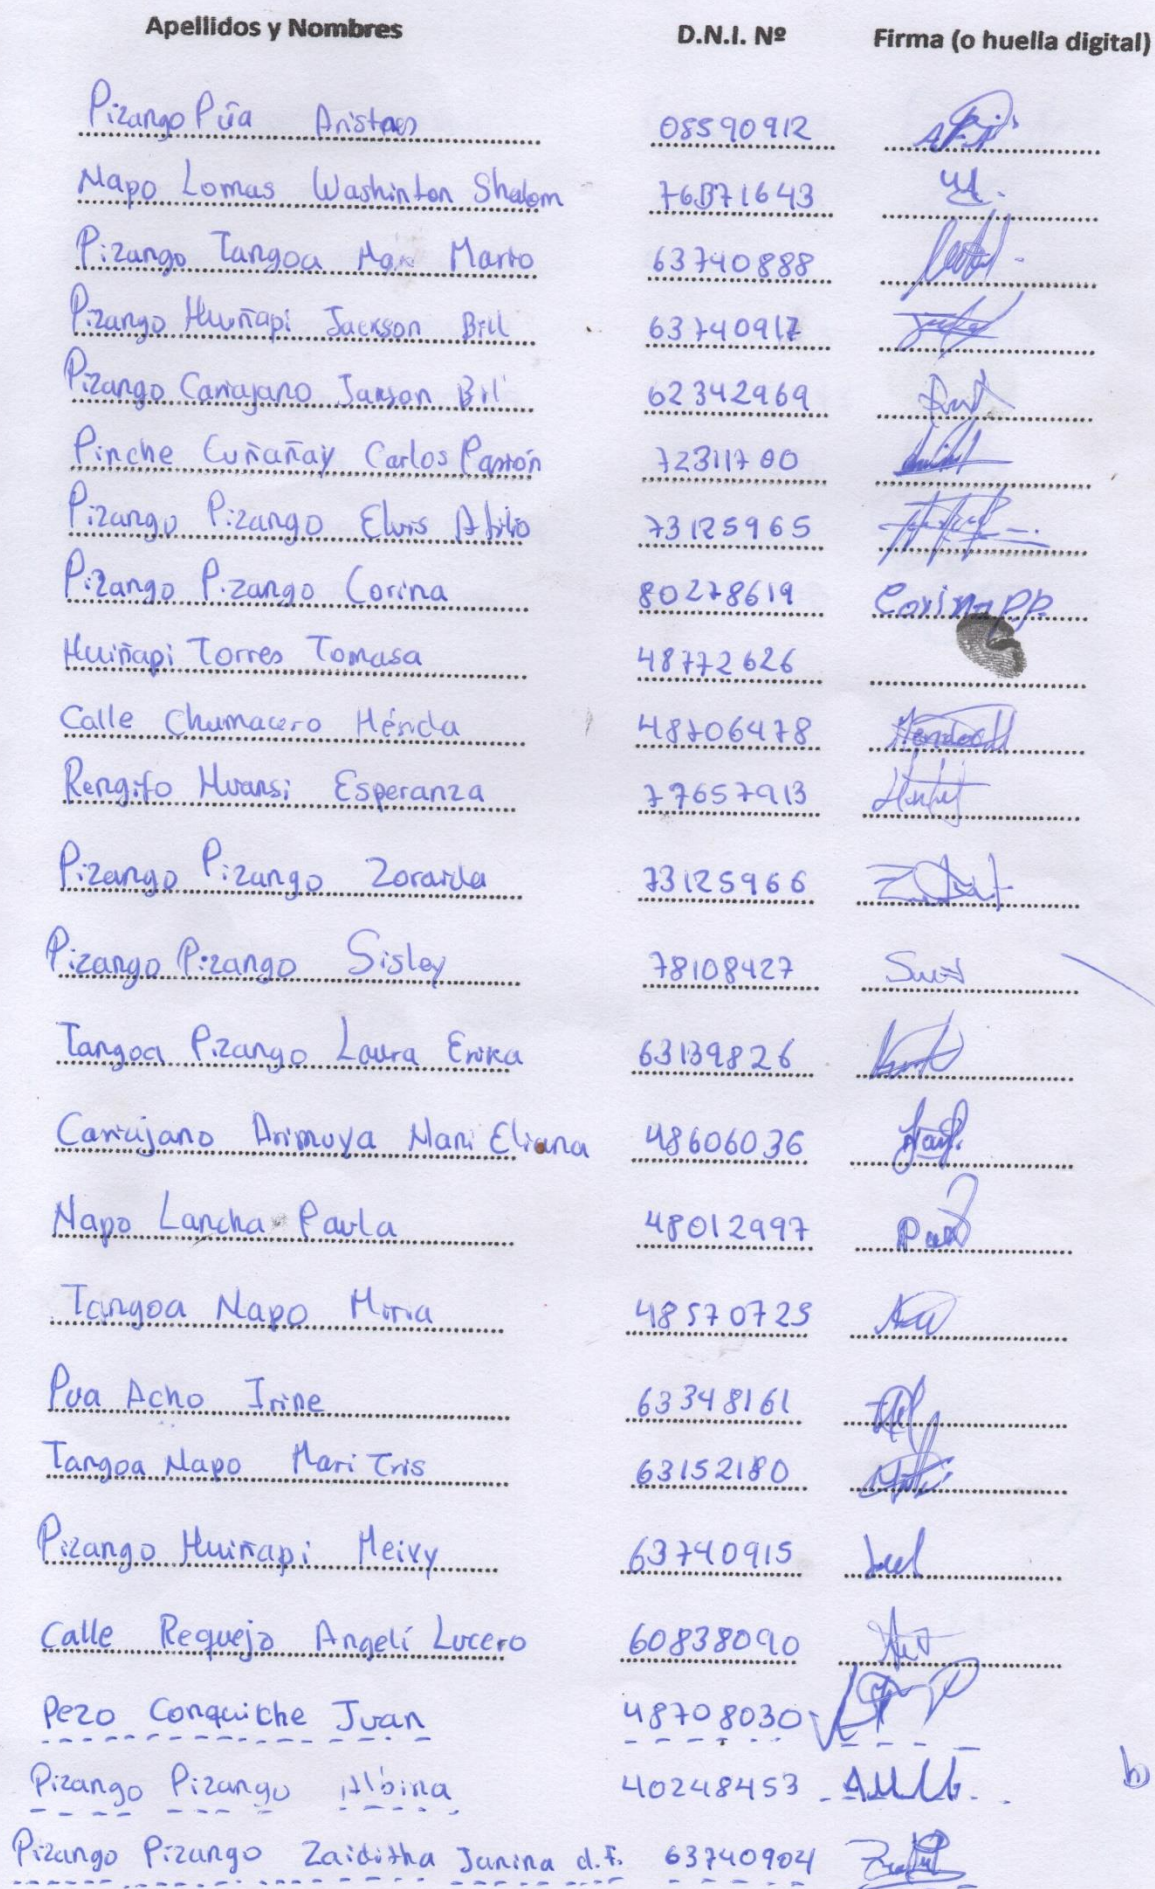 Apellidos y Nombres D.N.I. Nº Firma (o huella digital)
Pizango Púa Aristas 05590912
Napo Lomas Washinton Shalom 76871643
Pizango Tangoa Max Marto 63740888
Pizango Huiñapi Jackson Bill 63740917
Pizango Cariajano Jakson Bil 62342969
Pinche Cuñañay Carlos Pastrón 72311700
Pizango Pizango Elvis Abilio 73125965
Pizango Pizango Corina 80278619 Corina pp.
Huiñapi Torres Tomasa 48772626
Calle Chumacero Hérida 48706478
Rengifo Huansi Esperanza 77657913
Pizango Pizango Zoraida 73125966
Pizango Pizango Sisley 78108427
Tangoa Pizango Laura Erika 63139826
Cariajano Arimuya Mari Eliana 48606036
Napo Lancha Paula 48012997
Tangoa Napo Miria 48570725
Pua Acho Irine 63348161
Tangoa Napo Mari Cris 63152180
Pizango Huiñapi Meivy 63740915
Calle Requejo Angelí Lucero 60838090
Pezo Conquiche Juan 48708030
Pizango Pizango Albina 40248453
b
Pizango Pizango Zaiditha Janina d.f. 63740904